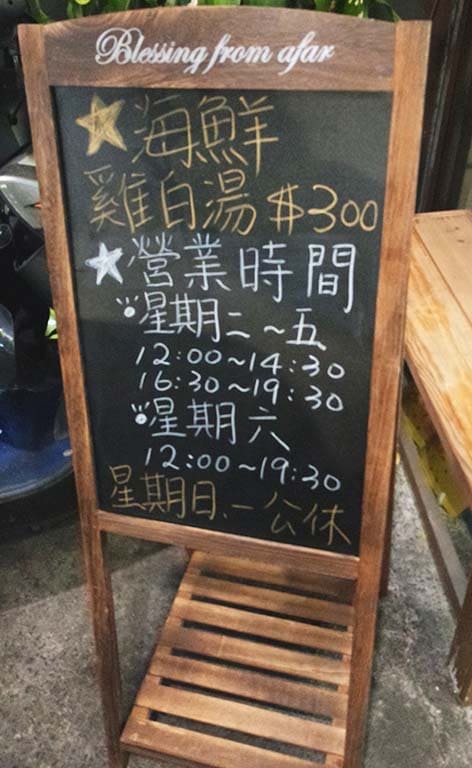 Blessing from afar
海鮮
雞白湯 $300
營業時間
星期二~五
12:00~14:30
16:30~19:30
星期六
12:00~19:30
星期日、一公休